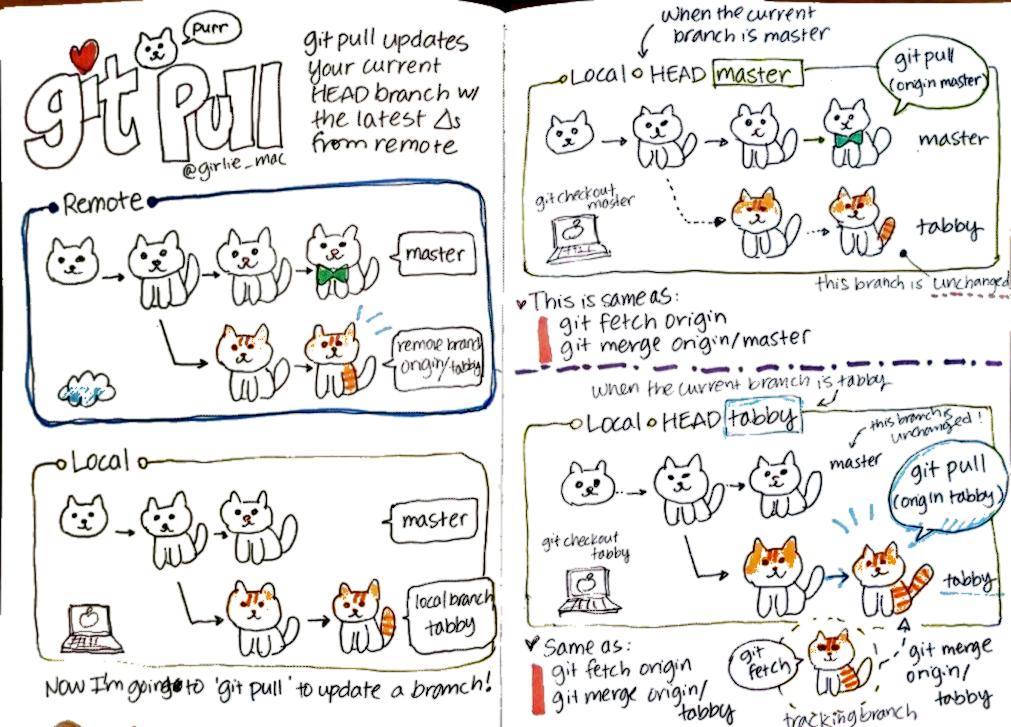 purr
git Pull
@girlie_mac
git pull updates
your current
HEAD branch w/
the latest Δs
from remote
Remote
master
remote branch
origin/tabby
Local
master
local branch
tabby
Now I'm going to 'git pull' to update a branch!
When the current
branch is master
Local HEAD master
git pull
(origin master)
master
git checkout
master
tabby
this branch is unchanged
This is same as:
git fetch origin
git merge origin/master
When the current branch is tabby
Local HEAD tabby
this branch is
unchanged!
master
git pull
(origin tabby)
git checkout
tabby
tabby
Same as:
git fetch origin
git merge origin/
tabby
git
fetch
git merge
origin/
tabby
tracking branch